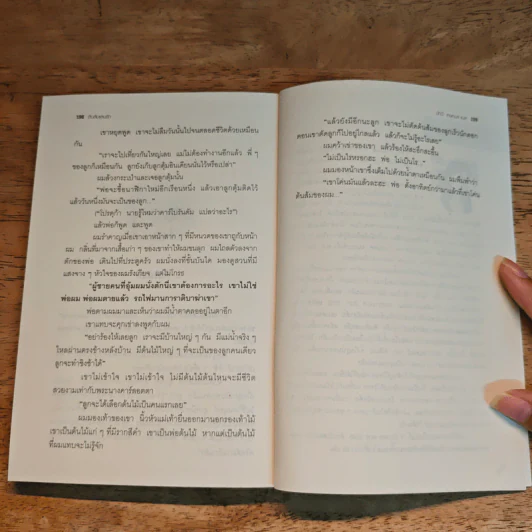 เขาหยุดพูด เขาจะไม่ลืมวันนั้นไปจนตลอดชีวิตด้วยเหมือน
กัน
"เราจะไปเที่ยวกันใหญ่เลย แม่ไม่ต้องทำงานอีกแล้ว พี่ ๆ
ของลูกก็เหมือนกัน ลูกยังกับลูกตุ้มอินเดียนนั่นไว้หรือเปล่า"
ผมล้วงกระเป๋าและเจอลูกตุ้มนั้น
"พ่อจะซื้อนาฬิกาใหม่อีกเรือนหนึ่ง แล้วเอาลูกตุ้มติดไว้
แล้ววันหนึ่งมันจะเป็นของลูก..."
("โปรตุก้า นายรู้ไหมว่าคาร์โบรันดัม แปลว่าอะไร")
แล้วพ่อก็พูด และพูด
ผมรำคาญเมื่อเขาเอาหน้าสาก ๆ ที่มีหนวดของเขาถูกับหน้า
ผม กลิ่นที่มาจากเสื้อเก่า ๆ ของเขาทำให้ผมขนลุก ผมไถลตัวลงจาก
ตักของพ่อ เดินไปที่ประตูครัว ผมนั่งลงที่ขั้นบันได มองดูสวนที่มี
แสงจาง ๆ หัวใจของผมรังเกียจ แต่ไม่โกรธ
"ผู้ชายคนที่อุ้มผมนั่งตักนี่เขาต้องการอะไร เขาไม่ใช่
พ่อผม พ่อผมตายแล้ว รถไฟมานการาติบาฆ่าเขา"
พ่อตามผมมาและเห็นว่าผมมีน้ำตาคลออยู่ในตาอีก
เขาแทบจะคุกเข่าลงพูดกับผม
"อย่าร้องไห้เลยลูก เราจะมีบ้านใหญ่ ๆ กัน มีแม่น้ำจริง ๆ
ไหลผ่านตรงข้างหลังบ้าน มีต้นไม้ใหญ่ ๆ ที่จะเป็นของลูกคนเดียว
ลูกจะทำชิงช้าได้"
เขาไม่เข้าใจ เขาไม่เข้าใจ ไม่มีต้นไม้ต้นไหนจะมีชีวิต
สวยงามเท่ากับพระนางคาร์ลอตตา
"ลูกจะได้เลือกต้นไม้เป็นคนแรกเลย"
ผมมองเท้าของเขา นิ้วหัวแม่เท้ายื่นออกมานอกรองเท้าไม้
เขาเป็นต้นไม้แก่ ๆ ที่มีรากสีดำ เขาเป็นพ่อต้นไม้ หากแต่เป็นต้นไม้
ที่ผมแทบจะไม่รู้จัก
"แล้วยังมีอีกนะลูก เขาจะไม่ตัดต้นส้มของลูกเร็วนักดอก
ตอนเขาตัดลูกก็ไปอยู่ไกลแล้ว แล้วก็จะไม่รู้อะไรเลย"
ผมคว้าเข่าของเขา แล้วร้องไห้สะอึกสะอื้น
"ไม่เป็นไรหรอกฮะ พ่อ ไม่เป็นไร..."
ผมมองหน้าเขาซึ่งเต็มไปด้วยน้ำตาเหมือนกัน ผมพึมพำว่า
"เขาโค่นมันแล้วละฮะ พ่อ ตั้งอาทิตย์กว่ามาแล้วที่เขาโค่น
ต้นส้มของผม..."